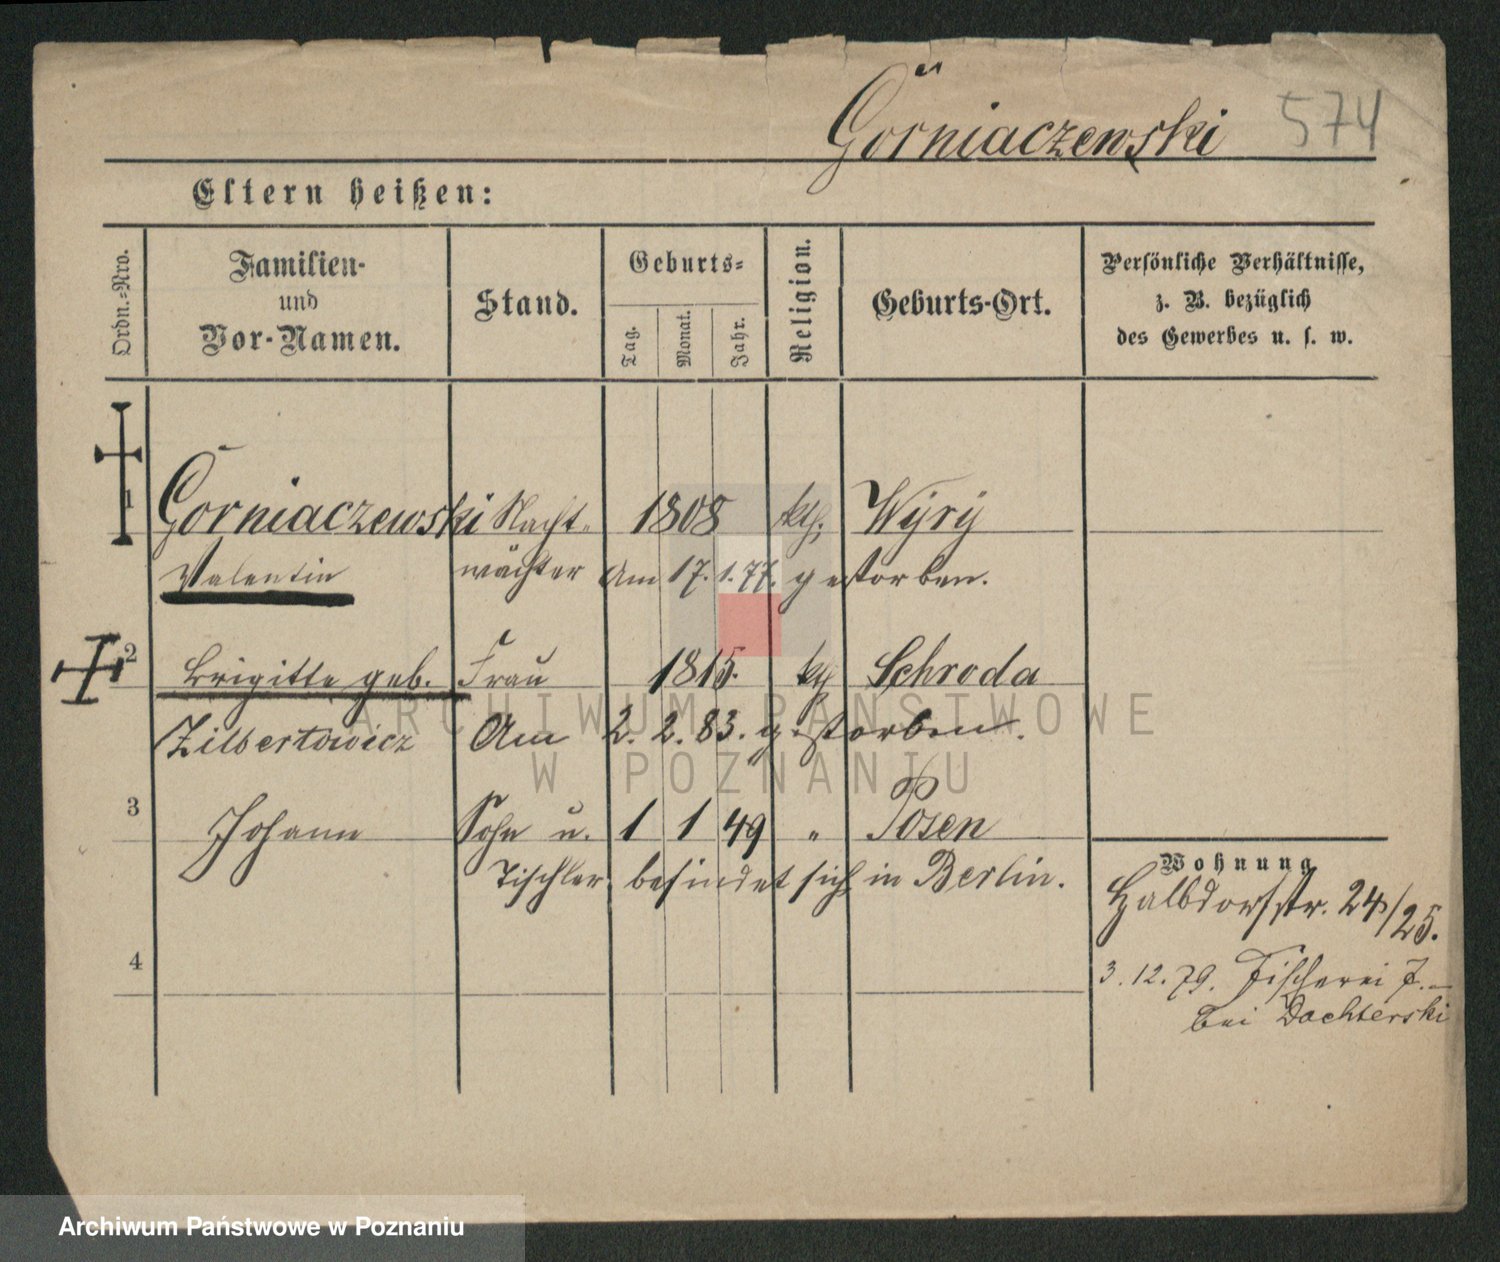 Górniaczewski 574
Eltern heißen:
Ordn.-Nro.
Familien-
und
Vor-Namen.
Stand.
Geburts-
Tag.
Monat.
Jahr.
Religion.
Geburts-Ort.
Persönliche Verhältnisse,
z. B. bezüglich
des Gewerbes u. s. w.
1 Górniaczewski Nacht- 1808 kth. Wyry
Valentin wächter Am 17.1.77. gestorben.
2 Brigitte geb. Frau 1815. kth Schroda
Zilbertowicz Am 2.2.83. gestorben.
3 Johann Sohn u. 1 1 49 " Posen
Tischler befindet sich in Berlin.
4
Wohnung
Halbdorfstr. 24/25.
3.12.79. Fischerei 7.
bei Dachterski
ARCHIWUM PAŃSTWOWE
W POZNANIU
Archiwum Państwowe w Poznaniu